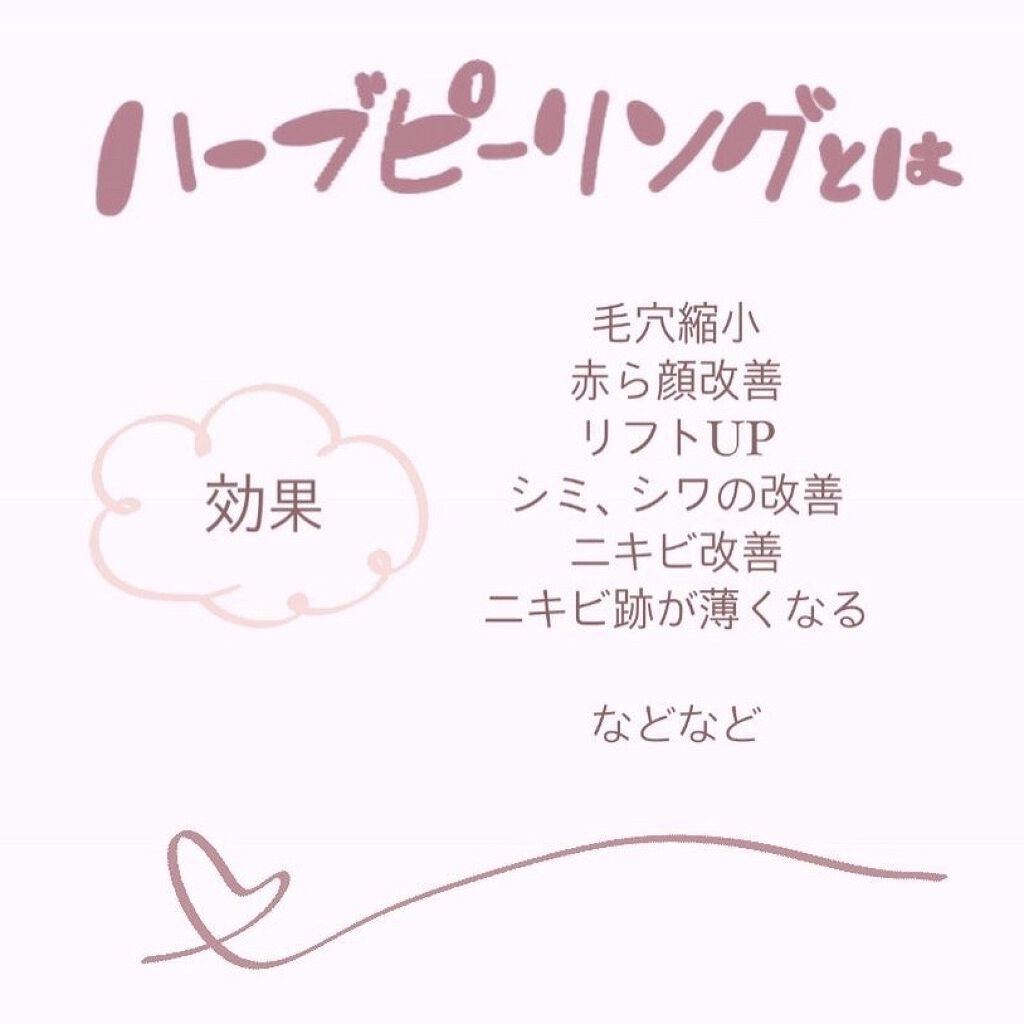 ハーブピーリングとは
効果
毛穴縮小
赤ら顔改善
リフトUP
シミ、シワの改善
ニキビ改善
ニキビ跡が薄くなる
などなど